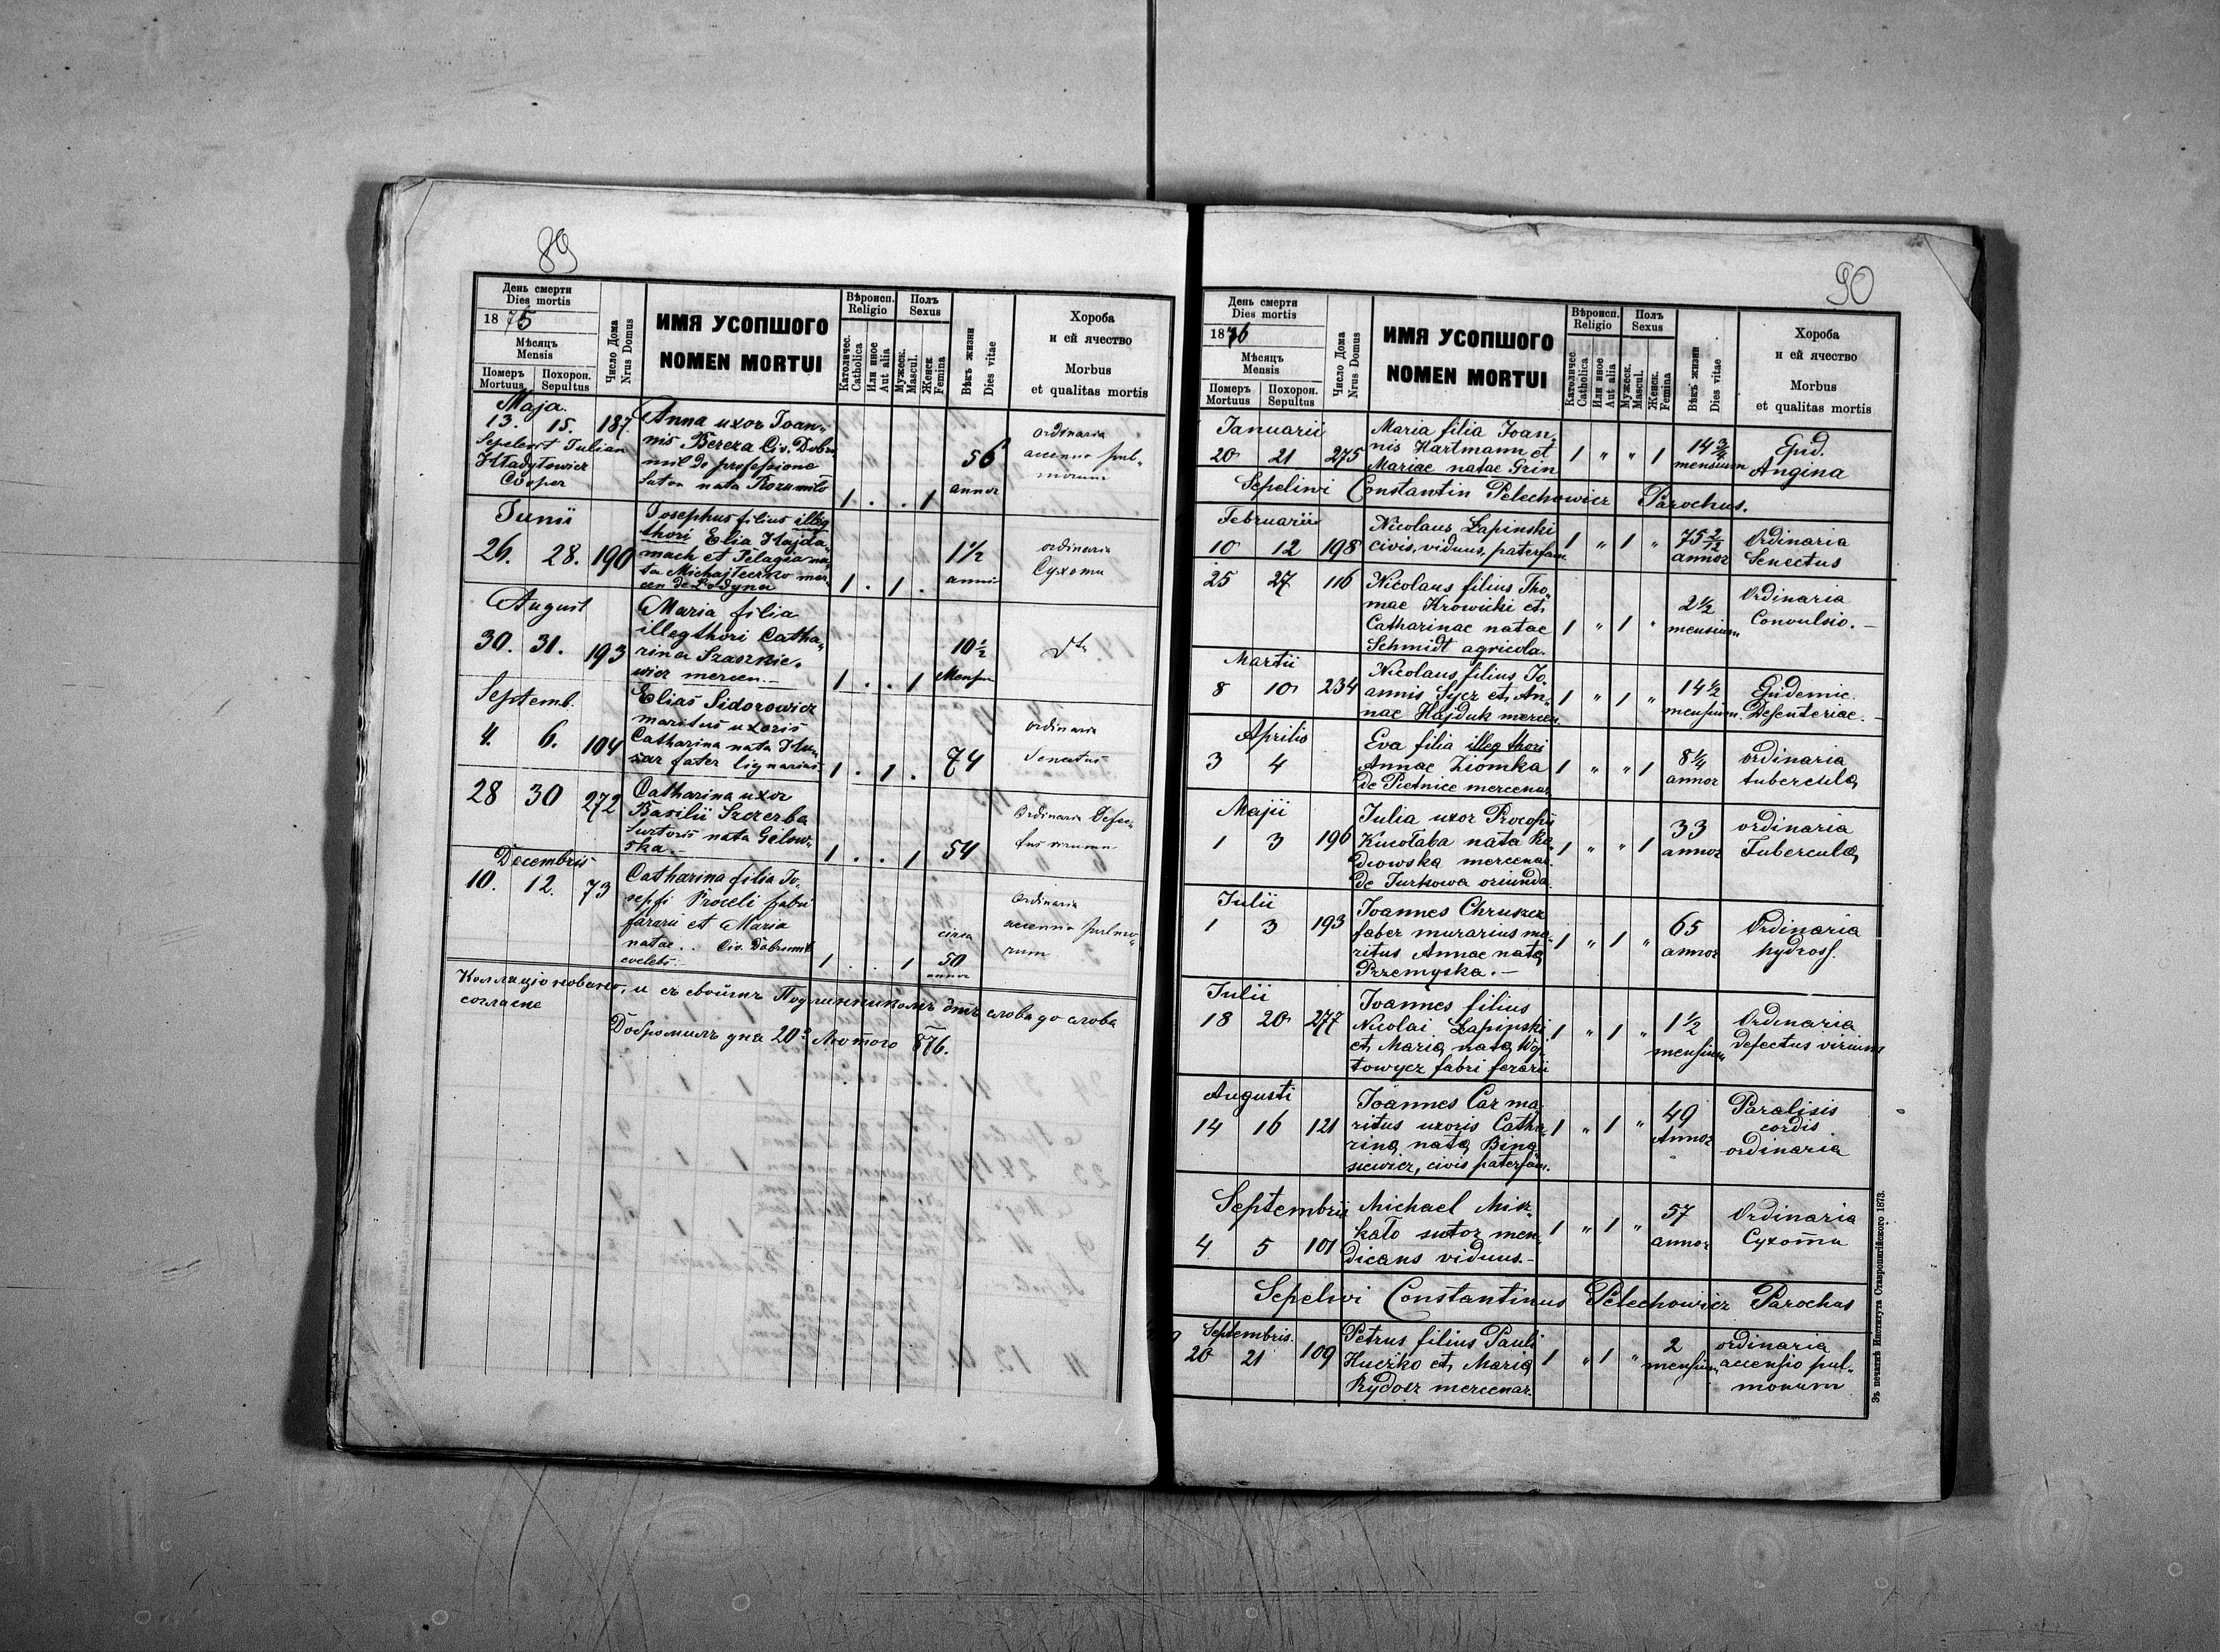 89
День смерти
Dies mortis
1875
Мѣсяцъ
Mensis
Померъ
Mortuus
Похорон.
Sepultus
Число Дома
Nrus Domus
ИМЯ УСОПШОГО
NOMEN MORTUI
Вѣроисп.
Religio
Католичес.
Catholica
Или иное
Aut alia
Полъ
Sexus
Мужеск.
Mascul.
Женск.
Femina
Вѣкъ жизни
Dies vitae
Хороба
и ей ячество
Morbus
et qualitas mortis
Maja.
13. 15. 187.
Sepelivit Julian
Cooper
Anna uxor Joan„
nis Bereza Civ. Dobro
mil de professione
Sutor nata Rozumiło
1 . . 1
56
annor
ordinaria
accensio pul„
monum
Junii
26. 28. 190
Josephus filius illeg
thori Elia Hajda„
mach et Pelagia na„
ta Michajleczko mer„
cen de Łodyna
1 . 1 .
1 1/2
anni
ordinaria
Сухоты
August
30. 31. 193
Maria filia
illeg thori Catha„
rina Szaszkie„
wicz mercen.—
1 . . 1
10 1/2
Mensu
dto
Septemb.
4. 6. 104
Elias Sidorowicz
maritus uxoris
Catharina nata
faber lignarius
1 . 1 .
74
ordinaria
Senectus
28 30 272
Catharina uxor
Basilii Szczerba
Sutoris nata Gelow„
ska.—
1 . . 1
54
Ordinaria Defec„
tus virium
Decembris
10. 12. 73
Catharina filia Jo„
sepfi Proceli fabri
fararii et Maria
natae . . Civ. Dobromil
coelebs.
1 . . 1
circa
50
annor
Ordinaria
accensio pulmo„
rum
Коллаціоновано, и съ своимъ Подлинникомъ слова до слова
согласне
Добромиль дня 20го Лютого 876.
90
День смерти
Dies mortis
1876
Мѣсяцъ
Mensis
Померъ
Mortuus
Похорон.
Sepultus
Число Дома
Nrus Domus
ИМЯ УСОПШОГО
NOMEN MORTUI
Вѣроисп.
Religio
Католичес.
Catholica
Или иное
Aut alia
Полъ
Sexus
Мужеск.
Mascul.
Женск.
Femina
Вѣкъ жизни
Dies vitae
Хороба
и ей ячество
Morbus
et qualitas mortis
Januarii
20 21 275
Maria filia Joan„
nis Hartmann et
Mariae natae Grin
1 „ „ 1
14 3/4
mensium
Epid.
Angina
Sepelivi Constantin Pelechowicz Parochus.
Februarii
10 12 198
Nicolaus Łapinski
civis, viduus, paterfam.
1 „ 1 „
75 2/12
annor
Ordinaria
Senectus
25 27 116
Nicolaus filius Tho„
mae Krowicki et
Catharinae natae
Schmidt agricola.
1 „ 1 „
2 1/2
mensium
Ordinaria
Convulsio.—
Martii
8 10 234
Nicolaus filius Jo„
annis Sycz et An„
nae Hajduk mercen.
1 „ 1 „
14 1/2
mensium.
Epidemic.
Desenteriae.—
Aprilis
3 4
Eva filia illeg thori
Annae Ziomka
de Pietnice mercenar.
1 „ „ 1
8 1/4
annor
ordinaria
tubercula
Majii
1 3 196
Julia uxor Procopii
Kucołaba nata Ra„
diowska mercenar.
de Jurkowa oriunda.
1 „ „ 1
33
annor
ordinaria
Tubercula
Julii
1 3 193
Joannes Chruszcz
faber murarius ma„
ritus Annae nata
Przemyska.—
1 „ 1 „
65
annor
Ordinaria
hydrops.
Julii
18 20 277
Joannes filius
Nicolai Łapinski
et Maria nata Woj„
towycz fabri ferarii
1 „ 1 „
1 1/2
mensium
Ordinaria
defectus virium
Augusti
14 16 121
Joannes Car ma„
ritus uxoris Catha„
rina nata Bina„
siewicz, civis paterfam.
1 „ 1 „
49
Annor
Paralisis
cordis
ordinaria
Septembrii
4. 5 101
Michael Misz„
kało sutor men„
dicans viduus.—
1 „ 1 „
57
annor
Ordinaria
Сухоты
Sepelivi Constantinus Pelechowicz Parochus
Septembris.
20 21 109
Petrus filius Pauli
Huczko et Maria
Rydosz mercenar.
1 „ 1 „
2
mensium
ordinaria
accensio pul„
monum
Зъ печатнѣ Института Ставропигійского 1873.